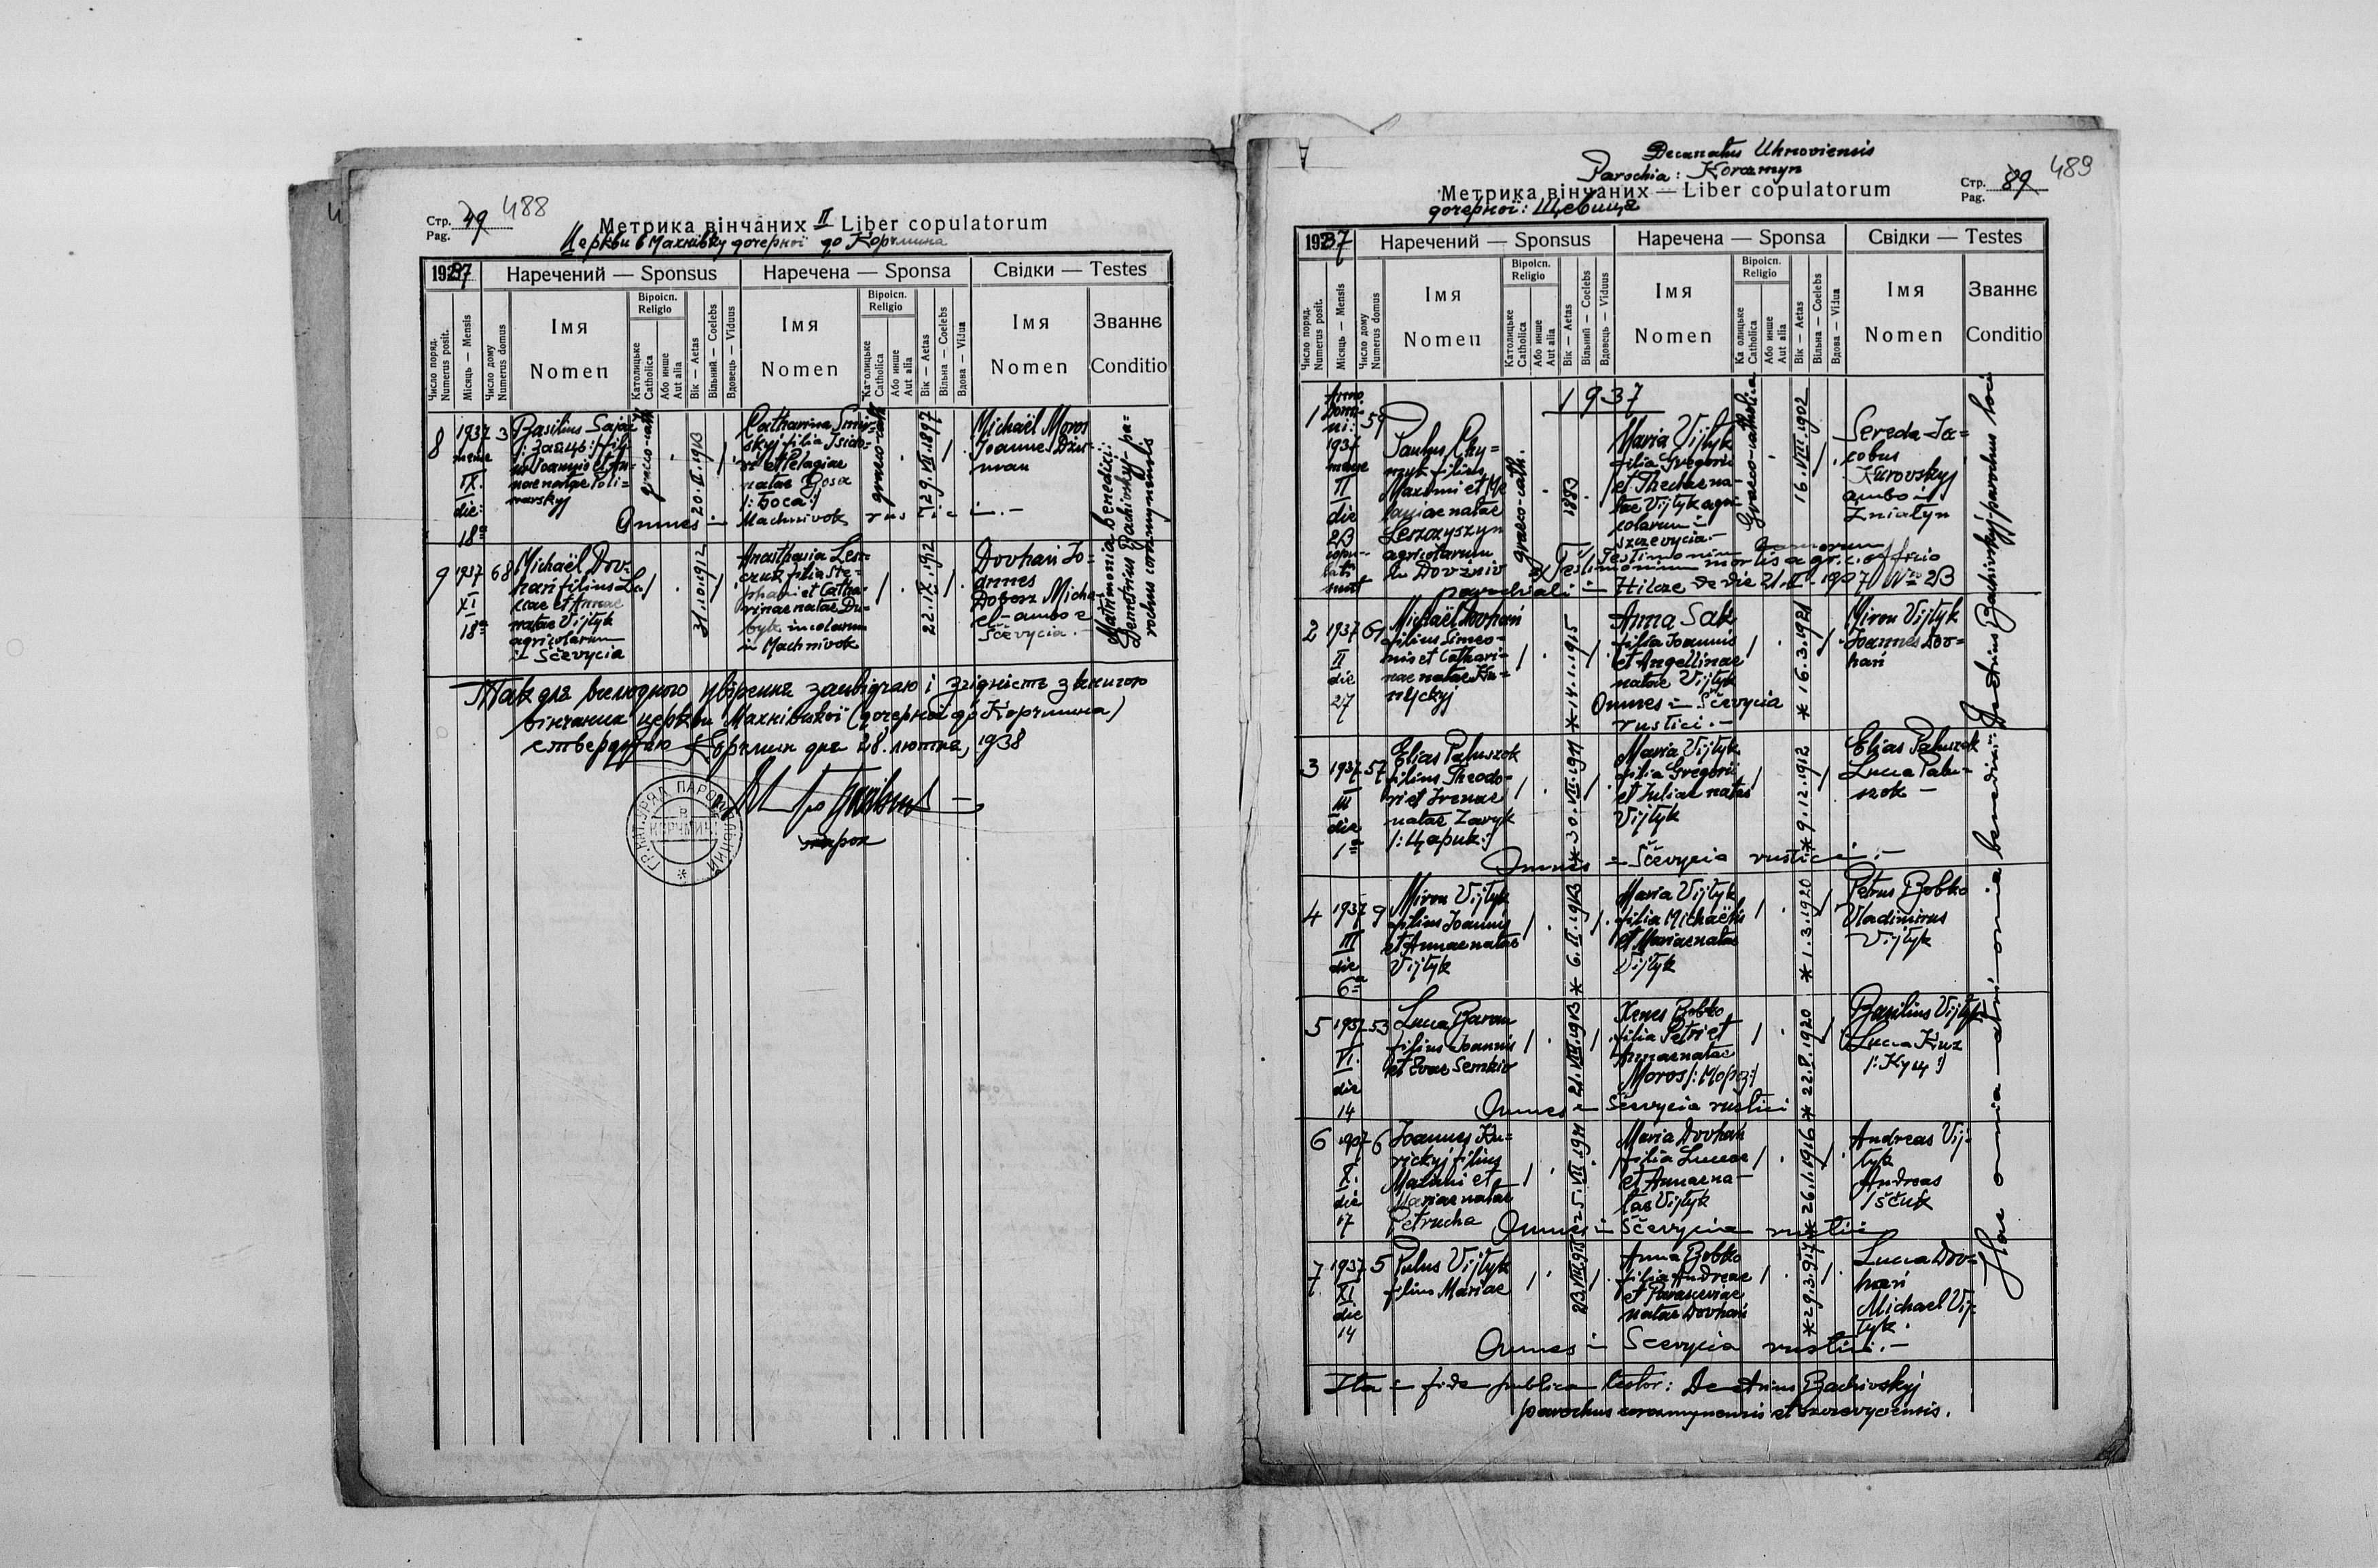 Стр. 49 488
Pag.
Метрика вінчаних II Liber copulatorum
Церкви в Махнівку дочерної до Корчмина
1937 Наречений — Sponsus Наречена — Sponsa Свідки — Testes
Число поряд. Numerus posit.
Місяць — Mensis
Число дому Numerus domus
Імя
Nomen
Віроісп.
Religio
Католицьке Catholica
Або инше Aut alia
Вік — Aetas
Вільний — Coelebs
Вдовець — Viduus
Імя
Nomen
Віроісп.
Religio
Католицьке Catholica
Або инше Aut alia
Вік — Aetas
Вільна — Coelebs
Вдова — Vidua
Імя
Nomen
Званнє
Conditio
8
1937
mense
IX.
die:
18a
3
Basilius Sajac
/: Заяць :/ fili-
us Joannis et An-
nae natae Poli-
narskyj
graeco-cath.
20.II.1913
Catharina
skyj filia Isido-
ri et Pelagiae
natae Bosa
/: Боса :/
graeco-cath.
29.VII.1897
Michaël Moros
Joannes Dziu-
man
Omnes in Machnivok rustici.-
9
1937
XI
18a
68
Michaël Dov-
hań filius Lu-
cae et Annae
natae Vijtyk
agricolarum
in Sčevycia
31.10.1912
Anasthasia Lesz-
czuk filia Ste-
phani et Catha-
rinae natae Du-
byk incolarum
in Machnivok
22.IX.1912
Dovhań Jo-
annes
Dobosz Micha-
el - ambo e
Sčevycia.-
Matrimonia benedixi:
Demetrius Bachivskyj - pa-
rochus corczmynensis
Так для вселюдного увірення завіряю і згідність з книгою
вінчаних церкви Махнівської (дочерної до Корчмина)
стверджую Корчмин дня 28. лютня, 1938
парох
ГР. КАТ. УРЯД ПАРОХІЯЛЬНИЙ
в
КОРЧМИНІ
Decanatus Uhnoviensis
Parochia: Korczmyn
Стр. 89 489
Pag.
Метрика вінчаних — Liber copulatorum
дочерної: Щевиця
1937 Наречений — Sponsus Наречена — Sponsa Свідки — Testes
Число поряд. Numerus posit.
Місяць — Mensis
Число дому Numerus domus
Імя
Nomen
Віроісп.
Religio
Католицьке Catholica
Або инше Aut alia
Вік — Aetas
Вільний — Coelebs
Вдовець — Viduus
Імя
Nomen
Віроісп.
Religio
Ка олицьке Catholica
Або инше Aut alia
Вік — Aetas
Вільна — Coelebs
Вдова — Vidua
Імя
Nomen
Званнє
Conditio
1937
1
Anno
Domi-
ni:
1937
mense
II
die
23
copu-
lati
sunt
59
Paulus
filius
Maximi et Me-
laniae natae
Leszczyszyn
agricolarum
in Dovżniv
graeco-cath.
1883
Maria Vijtyk
filia Gregorii
et Theclae na-
tae Vijtyk agri-
colarum in
Szczevycia.-
Graeco-catholica
16.VII.1902
Sereda Ja-
cobus
Kurovskyj
ambo in
Zniatyn
Testimonium mortis a gr. c. officio
parochiali in Hilcze de die 21.II.1937 Nro 23
2
1937
II
die
27
61
Michaël Dovhań
filius Simeo-
nis et Cathari-
nae natae Ku-
* 14.1.1915
Anna Sak
filia Joannis
et Angellinae
natae Vijtyk
* 16.3.1921
Miron Vijtyk
Joannes Dov-
hań
Omnes in Sčevycia
rustici.-
3
1937
III
die
1a
57
Elias Paluszok
filius Theodo-
ri et Irenae
natae Zaryk
/: Царик :/
* 30.VII.1911
Maria Vijtyk
filia Gregorii
et Juliae natae
Vijtyk
* 9.12.1912
Elias Paluszok
Luca Palu-
szok -
Omnes in Sčevycia rustici.-
4
1937
III
die
6a
9
Miron Vijtyk
filius Joannis
et Annae natae
Vijtyk
* 6.II.1913
Maria Vijtyk
filia Michaëlis
et Mariae natae
Vijtyk
* 1.3.1920
Petrus Bobko
Vladimirus
Vijtyk
5
1937
VI.
die
14
53
Luca Baran
filius Joannis
et Evae Semkiv
21.VIII.1913
Xenes Bobko
filia Petri et
Annae natae
Moros /: Мороз :/
* 22.V.1920
Basilius Vijtyk
Luca Kuz
/: Куц :/
Omnes in Sčevycia rustici
6
1937
X.
die
17
6
Joannes Ku-
rickyj filius
Maximi et
Mariae natae
Petrucha
25.VII.1911
Maria Dovhań
filia Lucae
et Annae na-
tae Vijtyk
* 26.1.1916
Andreas Vij-
tyk
Andreas
Iščuk
Omnes in Sčevycia rustici
7
1937
XI
die
14
5
Vijtyk
filius Mariae
23.VIII.1915
Anna Bobko
filia Andreae
et Parasceviae
natae Dovhań
* 29.3.1917
Luca Dov-
hań
Michael Vij-
tyk.
Omnes in Scevycia rustici.-
Haec omnia matrimonia benedixi: Demetrius Bachivskyj parochus loci
Ita in fide publica testor: Demetrius Bachivskyj
parochus corczmynensis et szczevycensis.